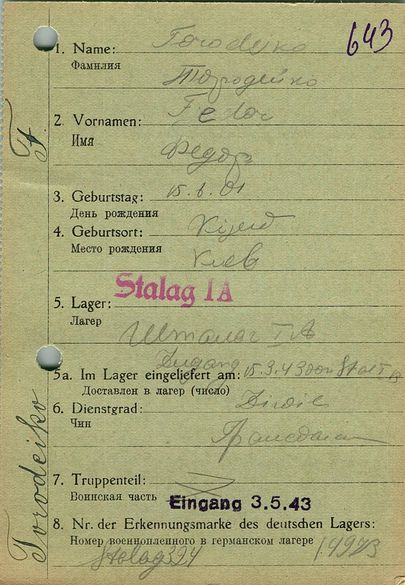 643
1. Name: Torodeiko
Фамилия
Тородейко
2. Vornamen: Fedor
Имя
Федор
3. Geburtstag: 15.6.01
День рождения
4. Geburtsort: Kijew
Место рождения
Киев
Stalag IA
5. Lager:
Лагерь
Шталаг IA
Zugang 15.3.43 von Stal I B
5a. Im Lager eingeliefert am:
Доставлен в лагерь (число)
6. Dienstgrad:
Чин
7. Truppenteil:
Воинская часть
Eingang 3.5.43
8. Nr. der Erkennungsmarke des deutschen Lagers:
Номер военнопленного в германском лагере
Stalag 394
Torodeiko F.